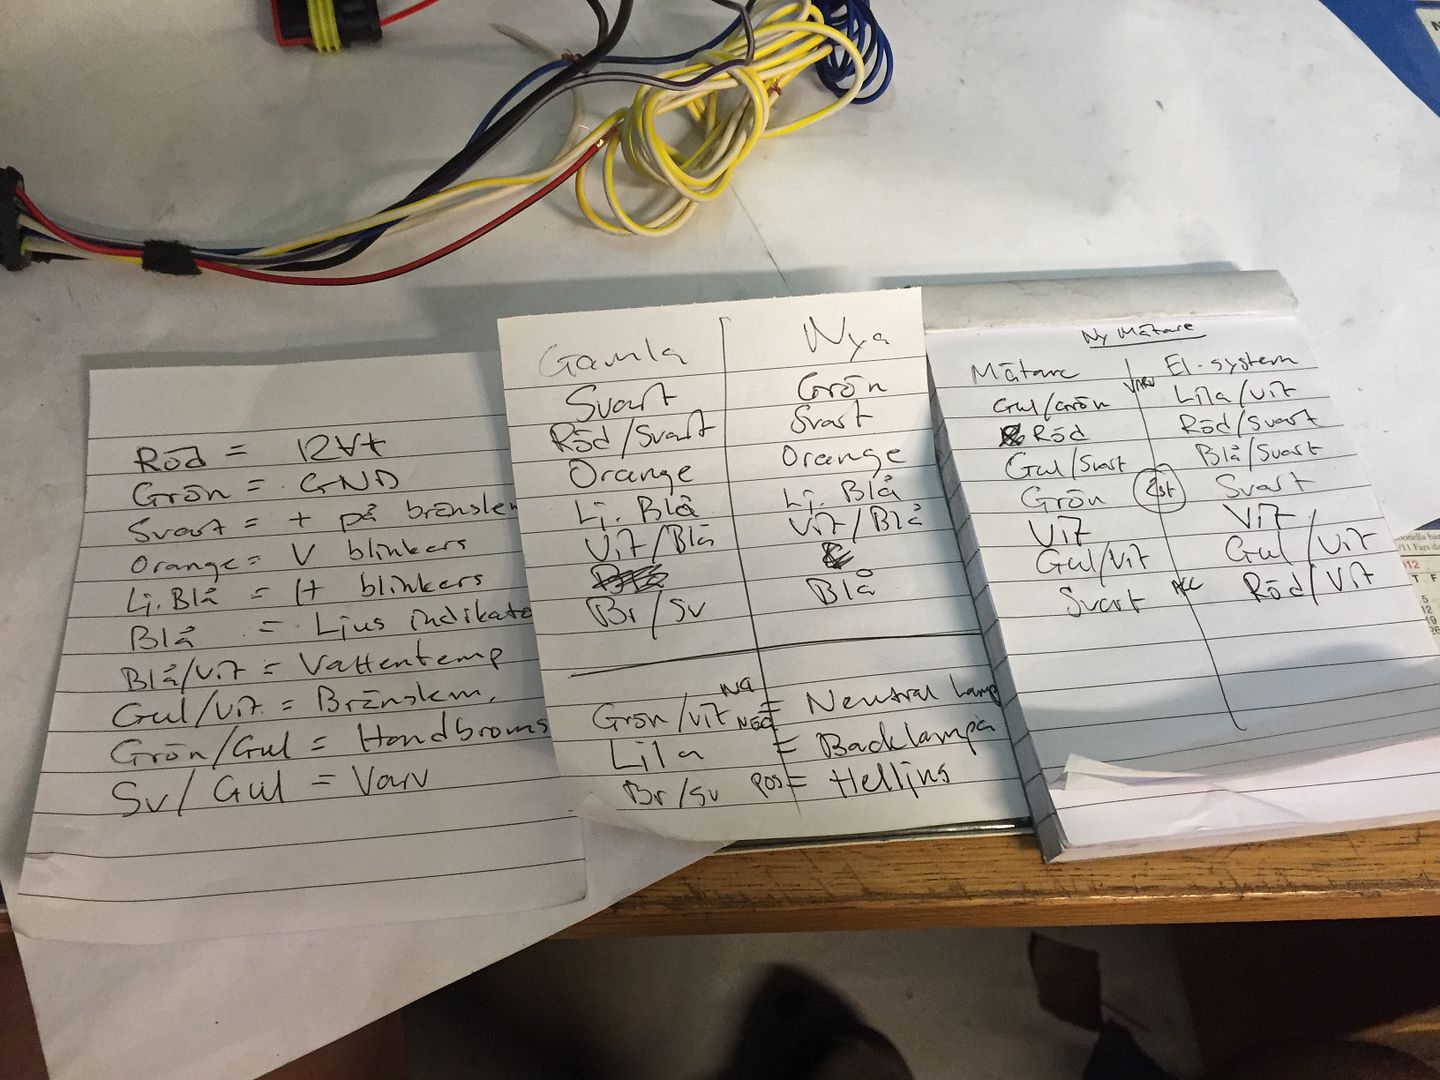 Röd = 12Vt
Grön = GND
Svart = + på bränslem
Orange = V blinkers
Lj. Blå = H blinkers
Blå = Ljus indikato
Blå/Vit = Vattentemp
Gul/Vit = Bränslem.
Grön/Gul = Handbroms
Sv/Gul = Varv
Gamla Nya
Svart Grön
Röd/Svart Svart
Orange Orange
Lj. Blå Lj. Blå
Vit/Blå Vit/Blå
Br/Sv Blå
Grön/Vit NEG = Neutral lamp
Lila = Backlampa
Br/Sv POS = Helljus
Ny Mätare
Mätare El-system
Gul/Grön VARV Lila/Vit
Röd Röd/Svart
Gul/Svart Blå/Svart
Grön Svart
Vit Vit
Gul/Vit Gul/Vit
Svart ACC Röd/Vit